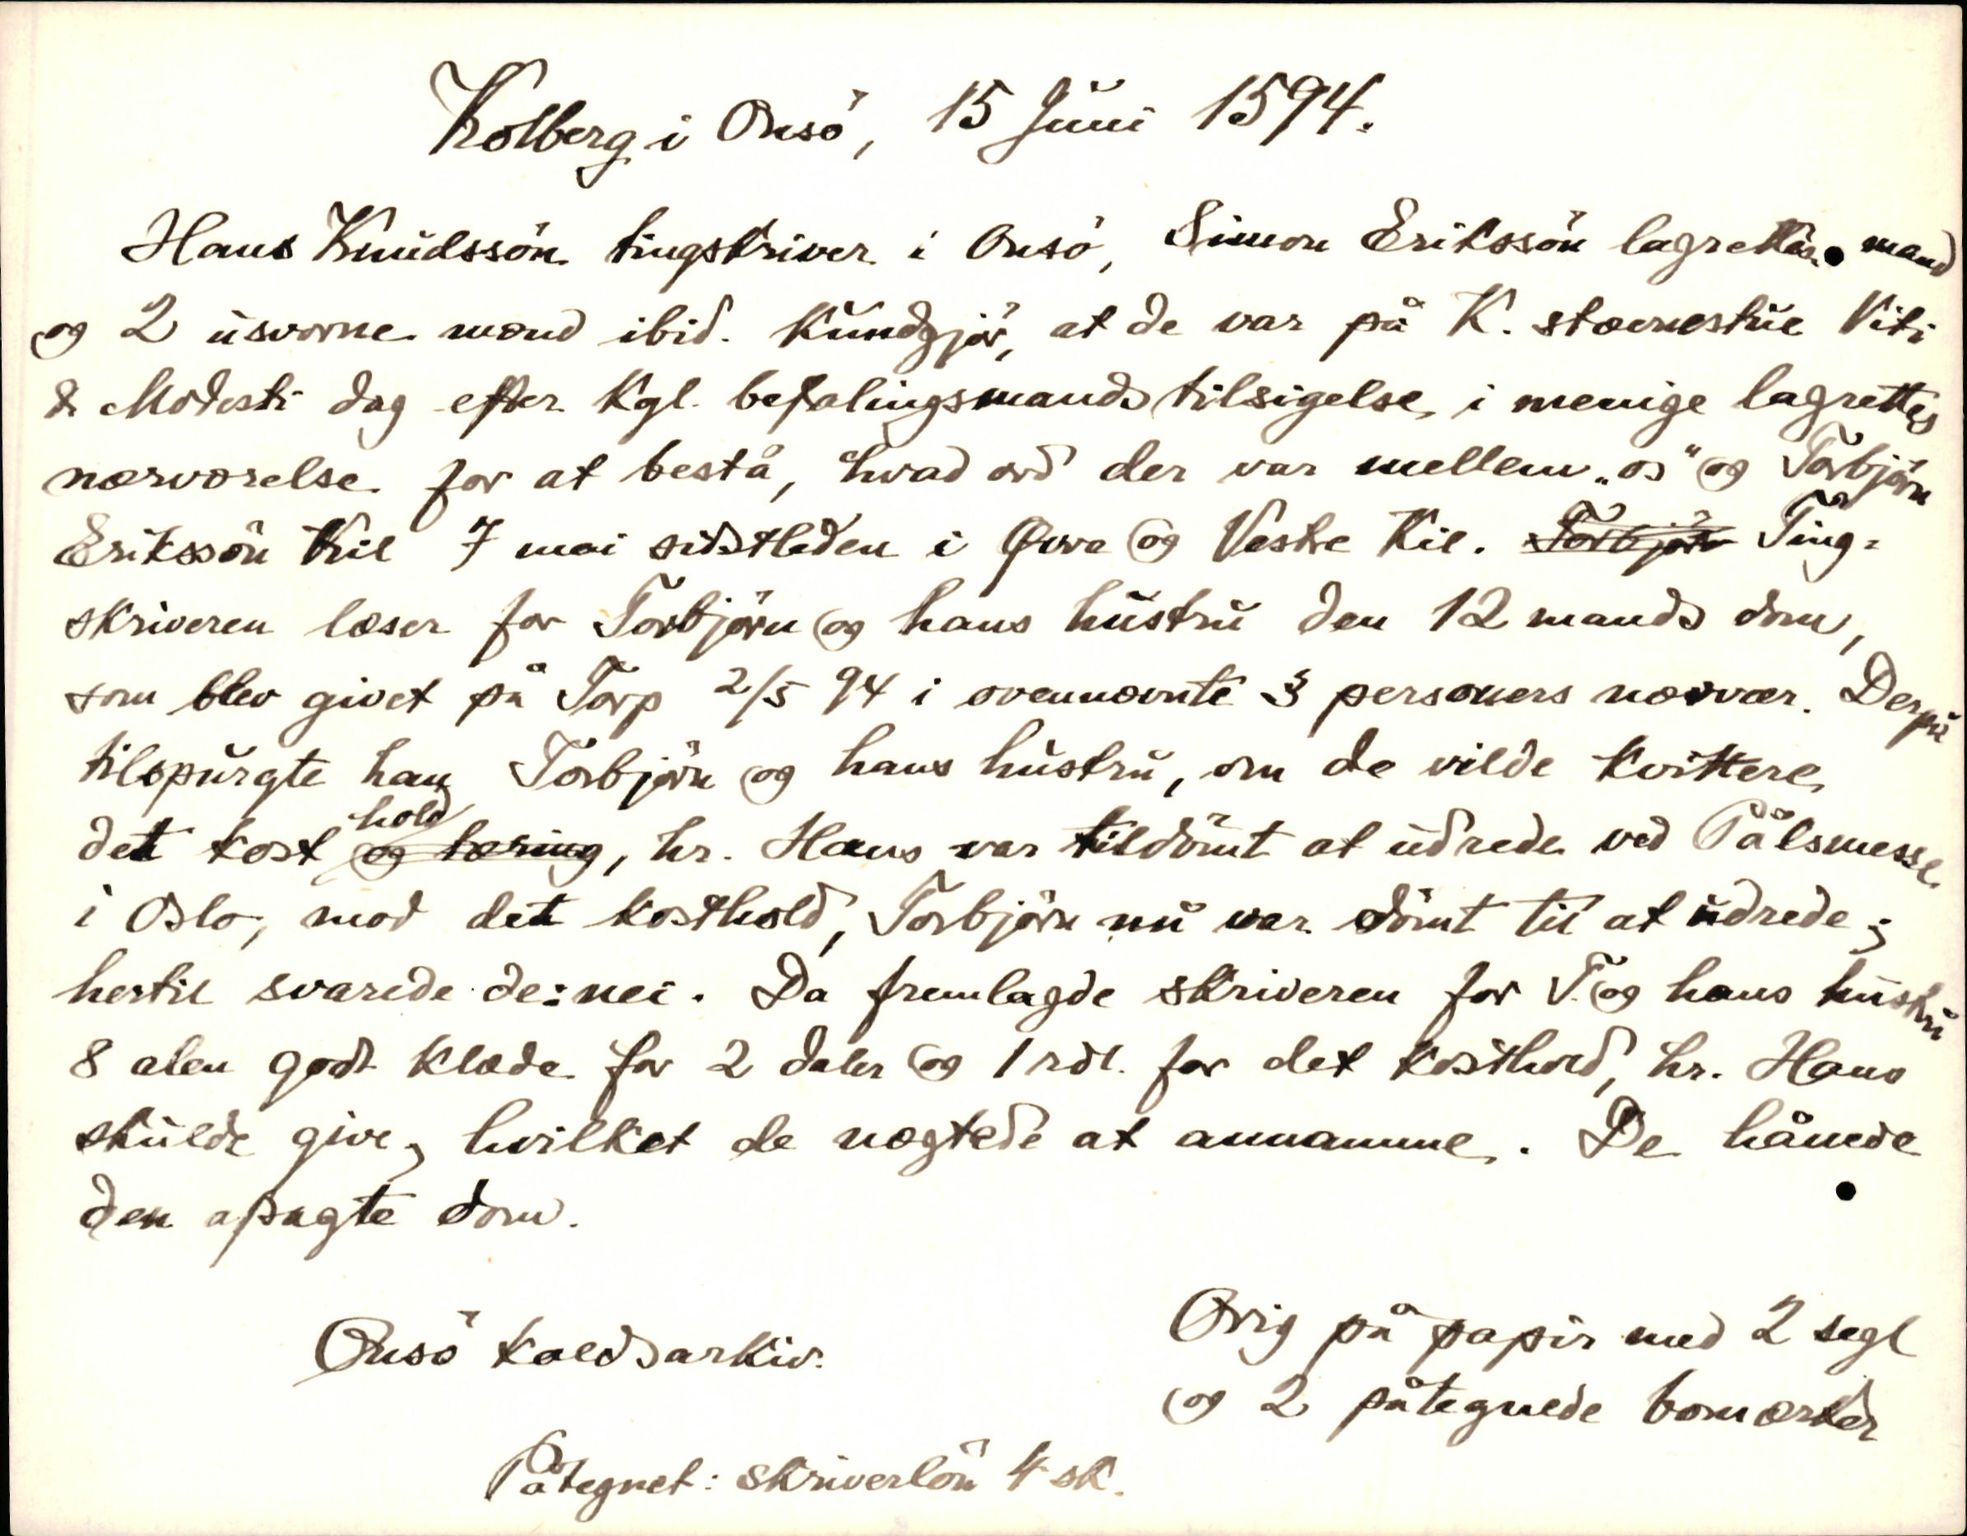 Kolberg i Onsö, 15 Juni 1594.
Hans Knudssön tingskriver i Onsö, Simon Erikssön lagrettes mand
og 2 usvorne mænd ibid. Kundgjör, at de var på K. stævnestue Viti
& Modesti dag efter Kgl. befalingsmands tilsigelse, i menige lagrettes
nærværelse for at bestå, hvad ord der var mellem „os" og Torbjörn
Erikssön Kil 7 mai sidstleden i Øvre og Vestre Kil. Torbjörn Ting-
skriveren læser for Torbjörn og hans hustru den 12 mands dom,
som blev givet på Torp 2/5 94 i ovennævnte 3 personers nærvær. Derpå
tilspurgte han Torbjörn og hans hustru, om de vilde kvittere
det kost hold og tæring, hr. Hans var tildömt at udrede ved Pålsmesse
i Oslo, mod det kosthold, Torbjörn nu var dömt til at udrede;
hertil svarede de: nei. Da fremlagde skriveren for T. og hans hustru
8 alen godt klæde for 2 daler og 1 rdl. for det kosthold, hr. Hans
skulde give, hvilket de nægtede at annamme. De hånede
den afsagte dom.
Onsö kaldsarkiv.
Orig på papir med 2 segl
og 2 påtegnede bomærker
Påtegnet: skriverlön 4 sk.